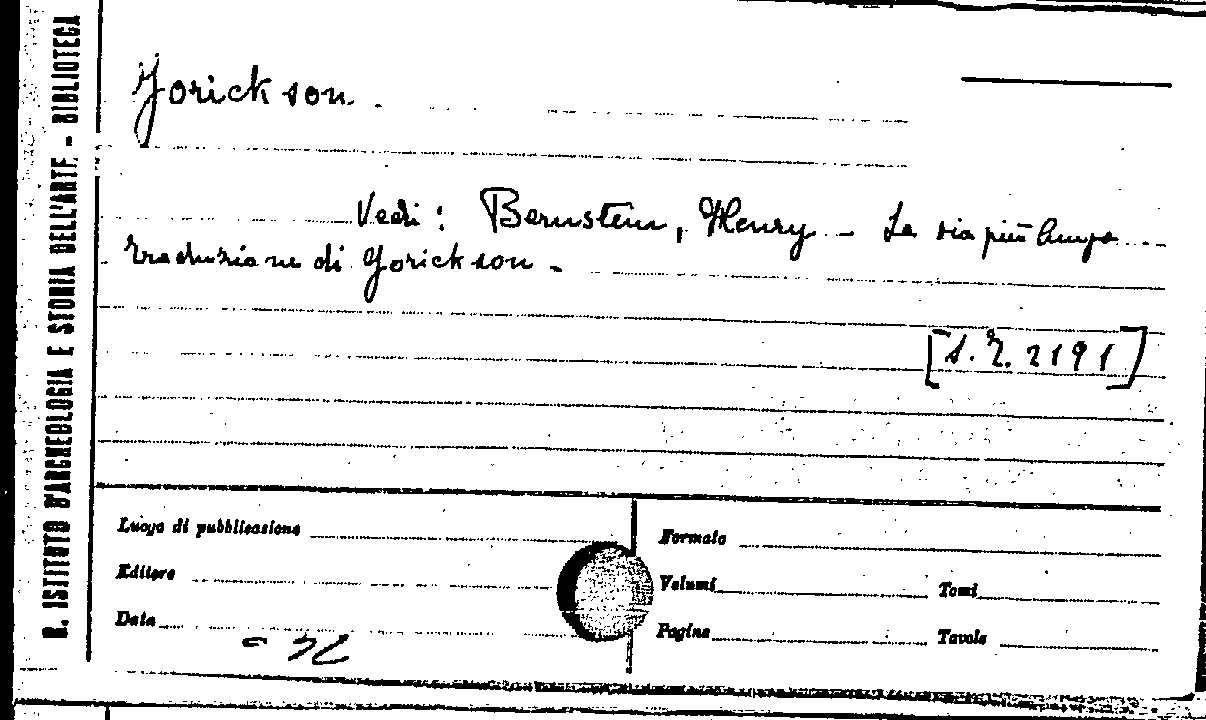 R. ISTITUTO D'ARCHEOLOGIA E STORIA DELL'ARTE - BIBLIOTECA
Yorickson.
Vedi: Bernstein, Henry - La via più lunga
traduzione di Yorickson -
[S. Z. 2191]
Luogo di pubblicazione
Formato
Editore
Volumi
Tomi
Data
Pagine
Tavole